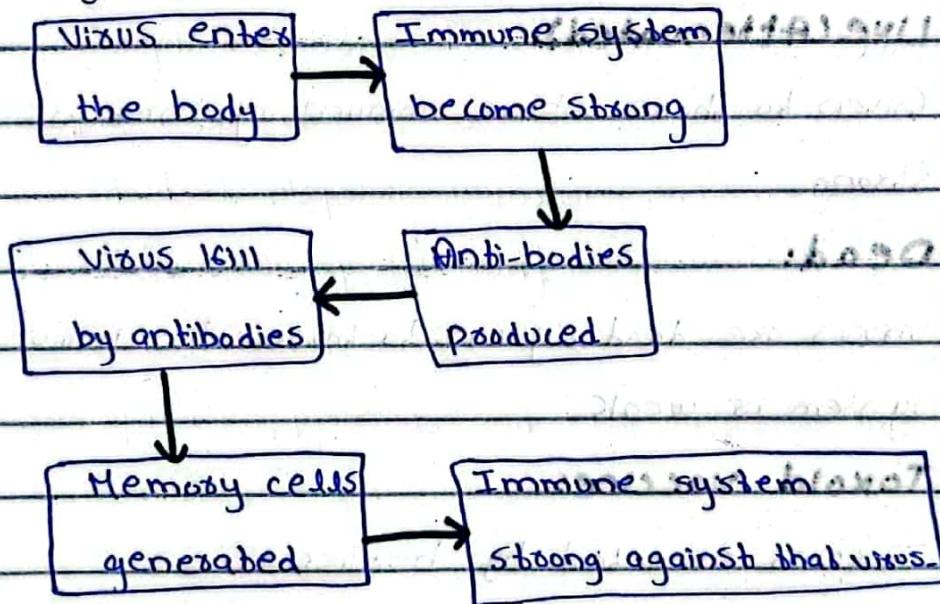 Virus enter
the body
Immune system
become strong
Anti-bodies
produced
Virus kill
by antibodies
Memory cells
generated
Immune system
strong against that virus.